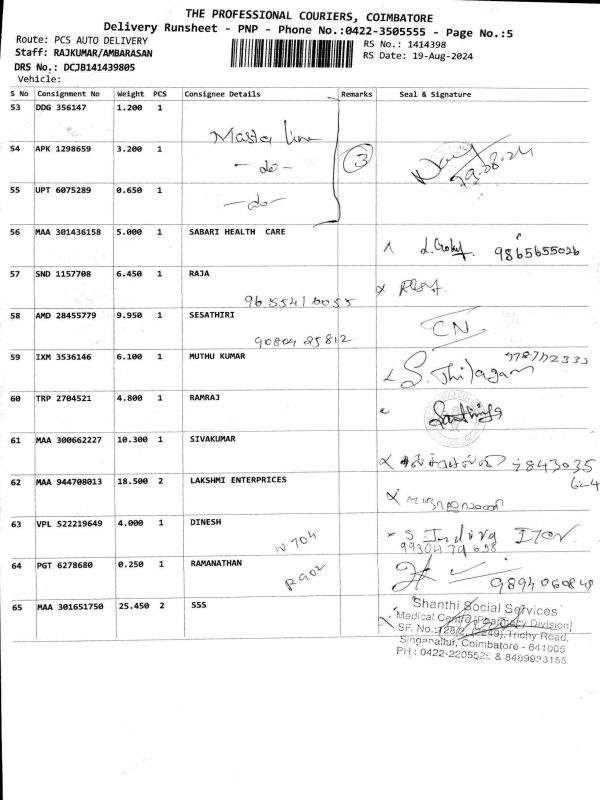 THE PROFESSIONAL COURIERS, COIMBATORE
Delivery Runsheet - PNP - Phone No.:0422-3505555 - Page No.:5
Route: PCS AUTO DELIVERY
RS No.: 1414398
Staff: RAJKUMAR/AMBARASAN
RS Date: 19-Aug-2024
DRS No.: DCJB141439805
Vehicle:
S No Consignment No Weight PCS Consignee Details Remarks Seal & Signature
53 DDG 356147 1.200 1
Master Line
54 APK 1298659 3.200 1
- do - 3
55 UPT 6075289 0.650 1
- do -
56 MAA 301436158 5.000 1 SABARI HEALTH CARE
9865655026
57 SND 1157708 6.450 1 RAJA
58 AMD 28455779 9.950 1 SESATHIRI
CN
90804 25812
59 IXM 3536146 6.100 1 MUTHU KUMAR
S. Thilagam
60 TRP 2704521 4.800 1 RAMRAJ
61 MAA 300662227 10.300 1 SIVAKUMAR
62 MAA 944708013 18.500 2 LAKSHMI ENTERPRICES
63 VPL 522219649 4.000 1 DINESH
N 704
64 PGT 6278680 0.250 1 RAMANATHAN
R902
9894060849
65 MAA 301651750 25.450 2 SSS
Shanthi Social Services
Medical Centre [Pharmacy Division]
Trichy Road,
Singanallur, Coimbatore - 641005